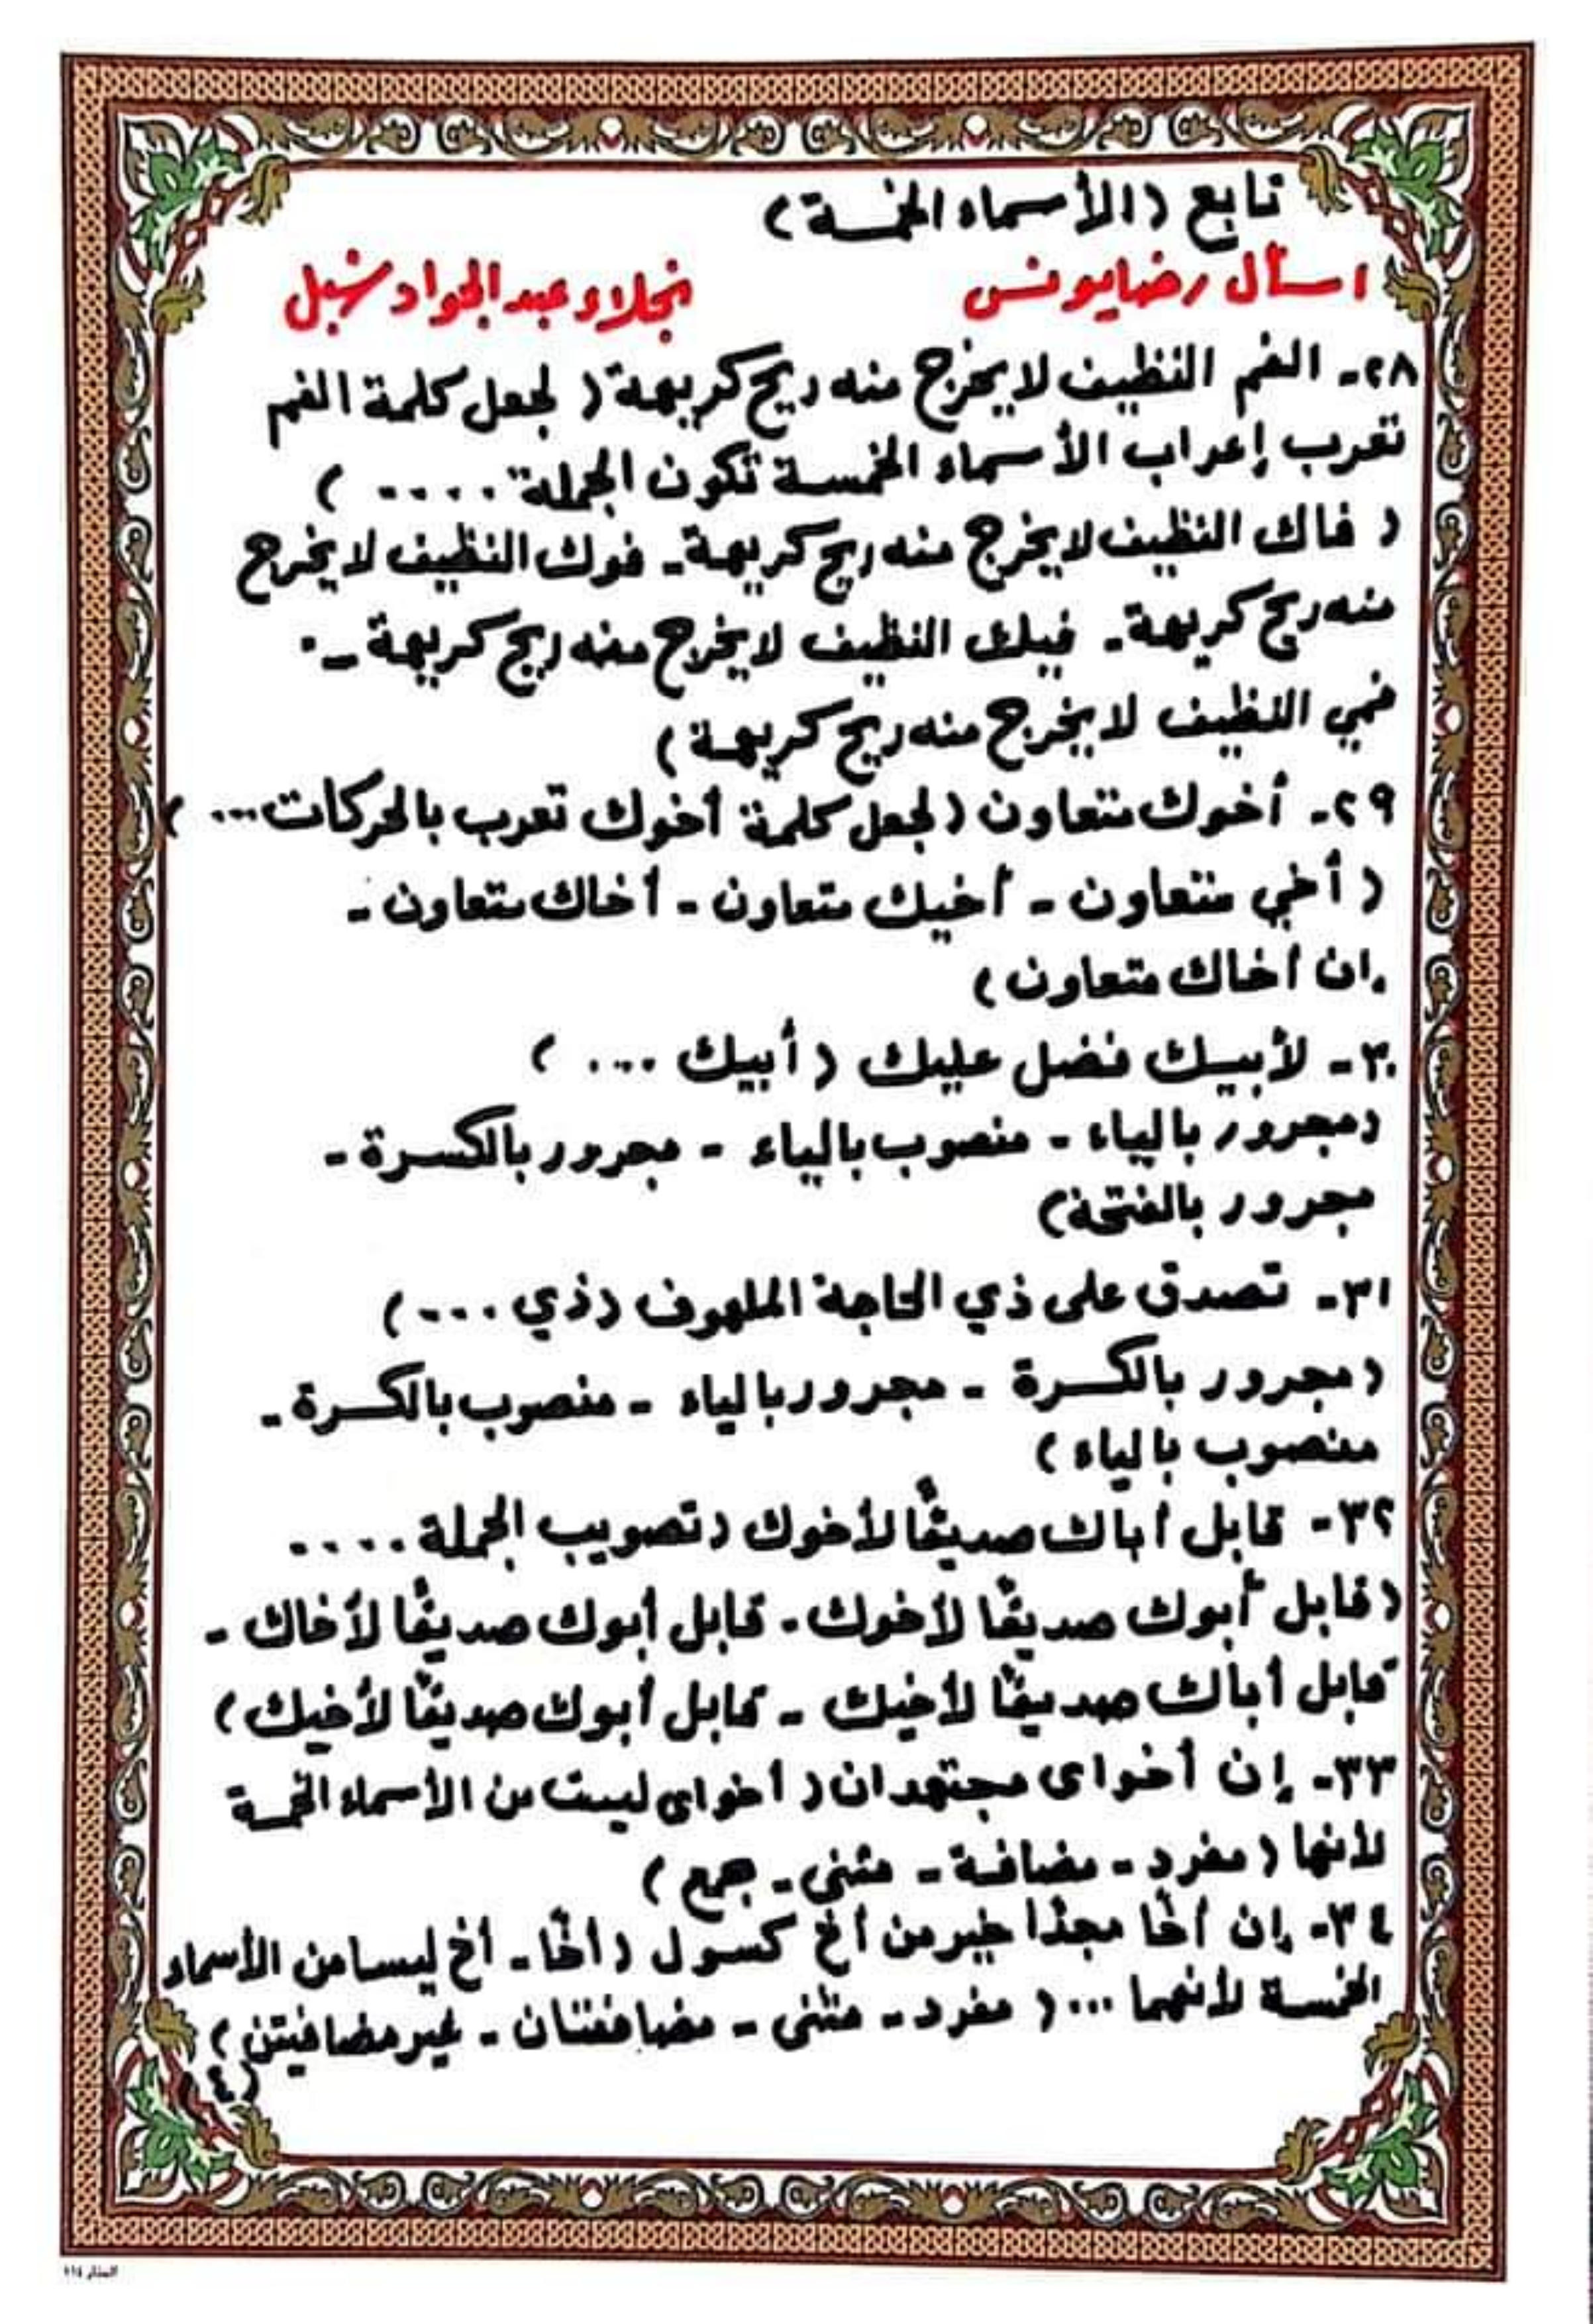 تابع (الأسماء الخمسة)
أ سأل رضا يونس
نجلاء عبد الجواد شبل
٢٨- الفم النظيف لا يخرج منه ريح كريهة ( لجعل كلمة الفم
تعرب إعراب الأسماء الخمسة تكون الجملة .... )
( فاك النظيف لا يخرج منه ريح كريهة - فوك النظيف لا يخرج
منه ريح كريهة - فيك النظيف لا يخرج منه ريح كريهة -
فمي النظيف لا يخرج منه ريح كريهة )
٢٩- أخوك متعاون ( لجعل كلمة أخوك تعرب بالحركات ... )
( أخي متعاون - أخيك متعاون - أخاك متعاون -
إن أخاك متعاون )
٣٠- لأبيك فضل عليك ( أبيك .... )
( مجرور بالياء - منصوب بالياء - مجرور بالكسرة -
مجرور بالفتحة )
٣١- تصدق على ذي الحاجة الملهوف ( ذي .... )
( مجرور بالكسرة - مجرور بالياء - منصوب بالكسرة -
منصوب بالياء )
٣٢- قابل أباك صديقًا لأخوك ( تصويب الجملة ....
( قابل أبوك صديقًا لأخوك - قابل أبوك صديقًا لأخاك -
قابل أباك صديقًا لأخيك - قابل أبوك صديقًا لأخيك )
٣٣- إن أخواى مجتهدان ( أخواى ليست من الأسماء الخمسة
لأنها ( مفرد - مضافة - مثنى - جمع )
٣٤- إن أخًا مجدًا خير من أخ كسول ( أخًا - أخ ليسا من الأسماء
الخمسة لأنهما ... ( مفرد - مثنى - مضافتان - غير مضافيتن )
(٤)
المنار ١١٤